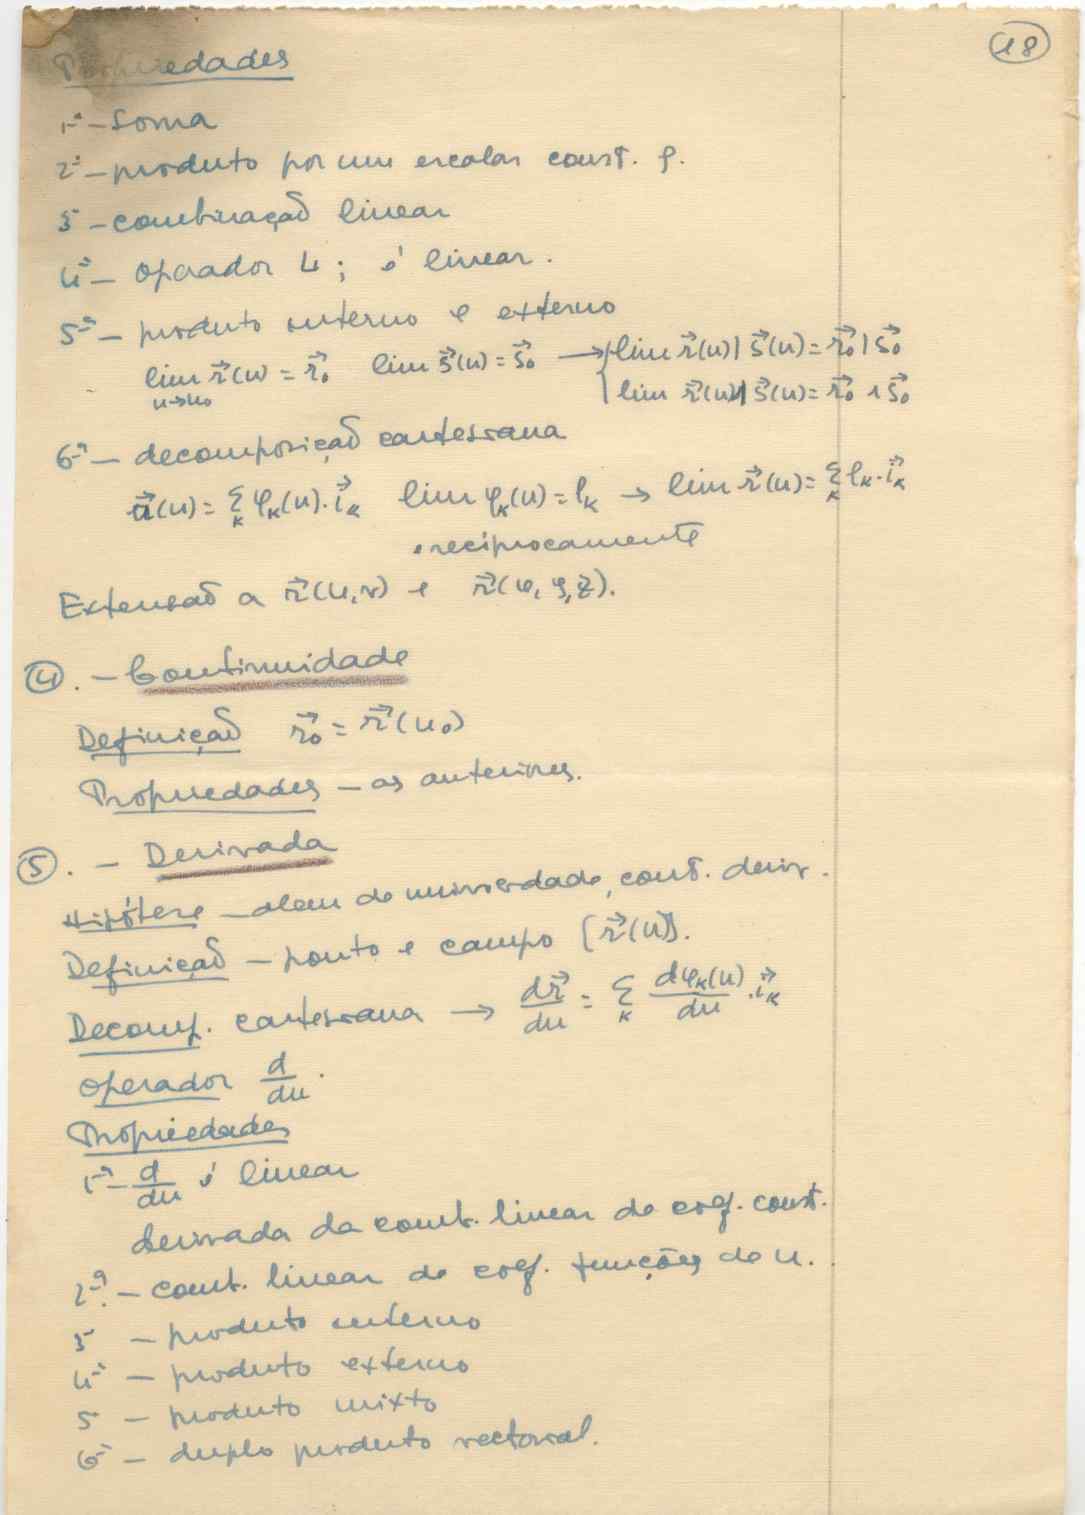 18
Propriedades
1ª - Soma
2ª - produto por um escalar const. ρ.
3 - combinação linear
4ª - operador L ; é linear.
5ª - produto interno e externo
lim r⃗(u) = r⃗₀ lim s⃗(u) = s⃗₀ → { lim r⃗(u) | s⃗(u) = r⃗₀ | s⃗₀
u→u₀ lim r⃗(u) ∧ s⃗(u) = r⃗₀ ∧ s⃗₀
6ª - decomposição cartesiana
r⃗(u) = Σₖ φₖ(u). i⃗ₖ lim φₖ(u) = lₖ → lim r⃗(u) = Σₖ lₖ. i⃗ₖ
e reciprocamente
Extensão a r⃗(u,v) e r⃗( , , z).
④. - Continuidade
Definição r⃗₀ = r⃗(u₀)
Propriedades - as anteriores.
⑤. - Derivada
Hipótese - alem de universdade, cont. deriv.
Definição - ponto e campo [r⃗(u)].
Decomp. cartesiana → dr⃗/du = Σₖ dφₖ(u)/du . i⃗ₖ
Operador d/du.
Propriedades
1ª - d/du é linear
derivada da comb. linear de coef. const.
2ª. - comb. linear de coef. funções de u.
3 - produto interno
4ª - produto externo
5 - produto mixto
6ª - duplo produto vectorial.